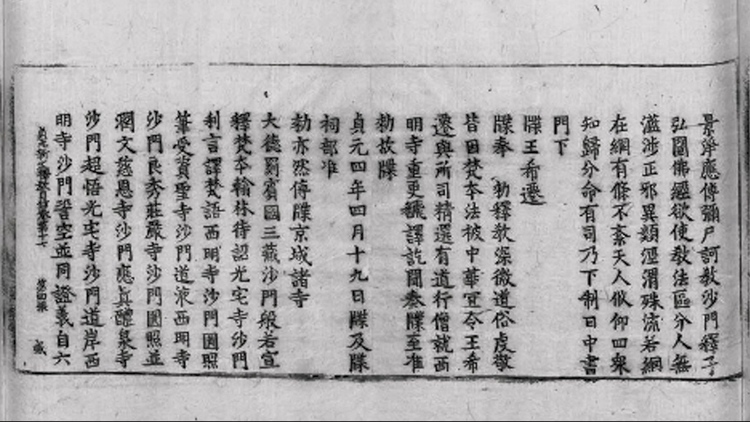 景淨應傳彌尸訶教沙門釋子
弘闡佛經欲使教法區分人無
濫涉正邪異類涇渭殊流若網
在綱有條不紊天人攸仰四衆
知歸分命有司乃下制曰中書
門下
牒王希遷
牒奉　勅釋教深微道俗虔敬
皆因梵本法被中華宜令王希
遷與所司精選有道行僧就西
明寺重更翻譯訖聞奏牒至准
勅故牒
貞元四年四月十九日牒及牒
祠部准
勅亦然傳牒京城諸寺
大德罽賓國三藏沙門般若宣
釋梵本翰林待詔光宅寺沙門
利言譯梵語西明寺沙門圓照
筆受資聖寺沙門道液西明寺
沙門良秀莊嚴寺沙門圓照並
潤文慈恩寺沙門應真醴泉寺
沙門超悟光宅寺沙門道岸西
明寺沙門䛒空並同證義自六
貞元新定釋教目錄卷第十七　第四張